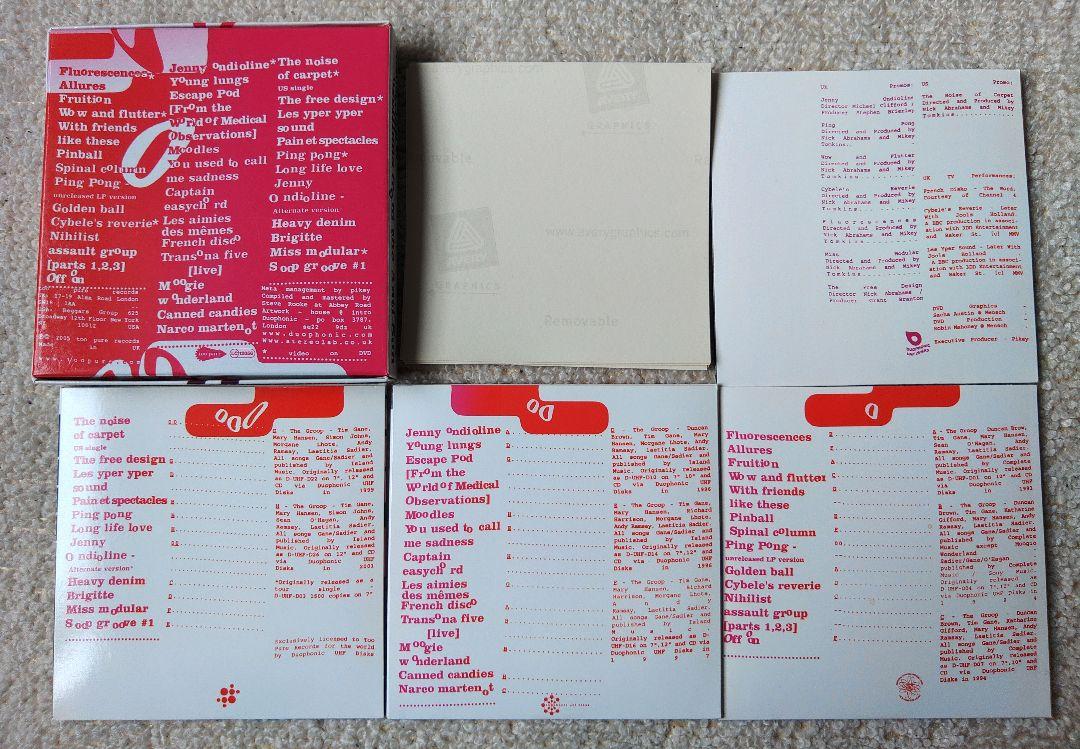 Fluorescences*
Allures
Fruition
Wow and flutter*
With friends
like these
Pinball
Spinal column
Ping Pong -
unreleased LP version
Golden ball
Cybele's reverie*
Nihilist
assault group
[parts 1,2,3]
Off on
Jenny ondioline*
Young lungs
Escape Pod
[From the
World of Medical
Observations]
Moodles
You used to call
me sadness
Captain
easychord
Les aimies
des mêmes
French disco
Transona five
[live]
Moogie
wonderland
Canned candies
Narco martenot
The noise
of carpet*
US single
The free design*
Les yper yper
sound
Pain et spectacles
Ping pong*
Long life love
Jenny
Ondioline -
Alternate version
Heavy denim
Brigitte
Miss modular*
Soop groove #1
too pure records
17-19 Alma Road London
1AA
Beggars Group 625
Broadway 12th Floor New York
NY 10012 USA
© 2005 too pure records
Made in UK
www.toopure.com
Meta management by pikey
Compiled and mastered by
Steve Rooke at Abbey Road
Artwork - house @ intro
Duophonic - po box 3787.
London se22 9dz uk
www.duophonic.com
www.stereolab.co.uk
* video on DVD
Removable
Removable
GRAPHICS
Removable
UK Promos:
Jenny Ondioline
Director Michael Clifford /
Producer Stephen Brierley
Ping Pong
Directed and Produced by
Nick Abrahams and Mikey
Tomkins..
Wow and Flutter
Directed and Produced by
Nick Abrahams and Mikey
Tomkins
Cybele's Reverie
Directed and Produced by
Nick Abrahams and Mikey
Tomkins
Fluorescences
Directed and Produced by
Nick Abrahams and Mikey
Tomkins
Miss Modular
Directed and Produced by
Nick Abrahams and Mikey
Tomkins
The Free Design
Director Nick Abrahams /
Producer Grant Branton
US Promo:
The Noise of Carpet
Directed and Produced by
Nick Abrahams and Mikey
Tomkins
UK TV Performances:
French Disko - The Word,
Courtesy of Channel 4
Cybele's Reverie - Later
With Jools Holland.
A BBC production in associ-
ation with 3DD Entertainment
and Maker St. [c] MMV
Les Yper Sound - Later With
Jools Holland
A BBC production in associ-
ation with 3DD Entertainment
and Maker St. [c] MMV
DVD Graphics -
Sacha Austin @ Mensch
DVD Production -
Robin Mahoney @ Mensch
Executive Producer - Pikey
The noise
of carpet
US single
The free design
Les yper yper
sound
Pain et spectacles
Ping pong
Long life love
Jenny
Ondioline -
Alternate version*
Heavy denim
Brigitte
Miss modular
Soop groove #1
G - The Groop - Tim Gane,
Mary Hansen, Simon Johns,
Morgane Lhote, Andy
Ramsay, Laetitia Sadier.
All songs Gane/Sadier and
published by Island
Music. Originally released
as D-UHF-D22 on 7", 12" and
CD via Duophonic UHF
Disks in 1999
H - The Groop - Tim Gane,
Mary Hansen, Simon Johns,
Sean O'Hagan, Andy
Ramsay, Laetitia Sadier.
All songs Gane/Sadier and
published by Island
Music. Originally released
as D-UHF-D26 on 12" and CD
via Duophonic UHF
Disks in 2001
*Originally released as a
tour single
D-UHF-D03 1500 copies on 7"
Exclusively licensed to Too
Pure Records for the World
by Duophonic UHF Disks
Jenny ondioline
Young lungs
Escape Pod
[From the
World of Medical
Observations]
Moodles
You used to call
me sadness
Captain
easychord
Les aimies
des mêmes
French disco
Transona five
[live]
Moogie
wonderland
Canned candies
Narco martenot
D - The Groop - Duncan
Brown, Tim Gane, Mary
Hansen, Morgane Lhote,
Andy Ramsay, Laetitia
Sadier. All songs
Gane/Sadier and published
by Island Music.
Originally released as
D-UHF-D10 on 7", 12" and CD
via Duophonic UHF Disks
in 1996
E - The Groop - Tim Gane,
Mary Hansen, Richard
Harrison, Morgane Lhote,
Andy Ramsay, Laetitia Sadier.
All songs Gane/Sadier and
published by Island
Music. Originally released
as D-UHF-D14 on 7",12" and
CD via Duophonic UHF
Disks in 1996
F - The Groop - Tim Gane,
Mary Hansen, Richard
Harrison, Morgane Lhote,
Andy
Ramsay, Laetitia Sadier.
All songs Gane/Sadier and
published by Island
Music.
Originally released as D-
UHF-D16 on 7",12" and CD via
Duophonic UHF Disks in
1997
Fluorescences
Allures
Fruition
Wow and flutter
With friends
like these
Pinball
Spinal column
Ping Pong -
unreleased LP version
Golden ball
Cybele's reverie
Nihilist
assault group
[parts 1,2,3]
Off on
A - The Groop - Duncan Brown,
Tim Gane, Mary Hansen,
Sean O'Hagan, Andy
Ramsay, Laetitia Sadier.
All songs Gane/Sadier and
published by Complete
Music. Originally released
as D-UHF-D01 on 7", 12" and
CD via Duophonic UHF
Disks in 1993
B - The Groop - Duncan
Brown, Tim Gane, Katharine
Gifford, Mary Hansen, Andy
Ramsay, Laetitia Sadier.
All songs Gane/Sadier and
published by Complete
Music except Moogie
Wonderland
Sadier/Gane/O'Hagan
published by Complete
Music / Sony Music.
Originally released as
D-UHF-D04 on 7",12" and CD
via Duophonic UHF Disks in
1994
C - The Groop - Duncan
Brown, Tim Gane, Katharine
Gifford, Mary Hansen, Andy
Ramsay, Laetitia Sadier.
All songs Gane/Sadier and
published by Complete
Music. Originally released
as D-UHF-D07 on 7",10" and
CD via Duophonic UHF
Disks in 1994